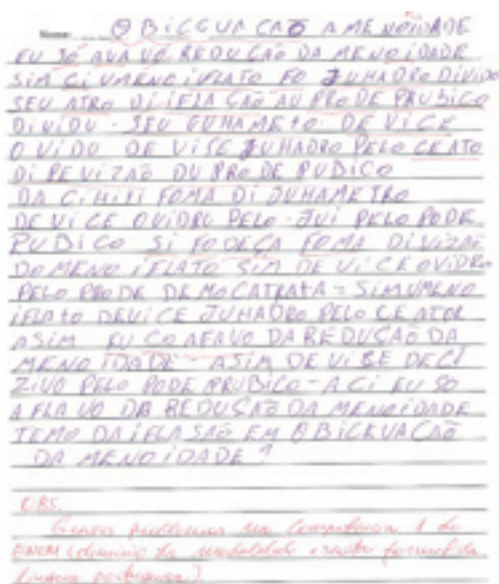 Nome: O BICCUA CAÕ A MENOIDADE
EU SÓ AVA VO REDU CAO DA MENOIDADE
SIM CI UMENO IFLATO FO JUHADRO DIVIDO
SEU ATRO DI IFLA CAO AU PRO DE PRUBICO
DIVIDU - SEU GUHAMETO. DE VICE
O VIDU DE VISE JUHADRO PELO CEATO
DI PEVIZAÕ DU PRO DE PUBICO
DA CIHITI FOMA DI JUHAMETRO
DE VICE OVIDRU PELO - JUI PELO PODE
PUBICO SI FODECA FOMA DIVIZAÕ
DOMENO IFLATO SIM DE VICE OVIDRO
PELO PRODE DEMOCATRATA = SIMUMENO
IFLATO DEVICE JUHADRO PELO CEATOR
ASIM EU CO AFAVO DA REDUSAO DA
MENOIDADE - ASIM DE VISE DECI
ZIVO PELO PODE PRUBICO - A CI EU SO
A FLA VO DB REDUSÃO DA MENOIDADE
TEMO DA IFLA SAO EM OBICKUACAÕ
DA MENOIDADE
OBS.
Graves problemas na Competência 1 do
ENEM (domínio da modalidade escrita formal da
língua portuguesa.)